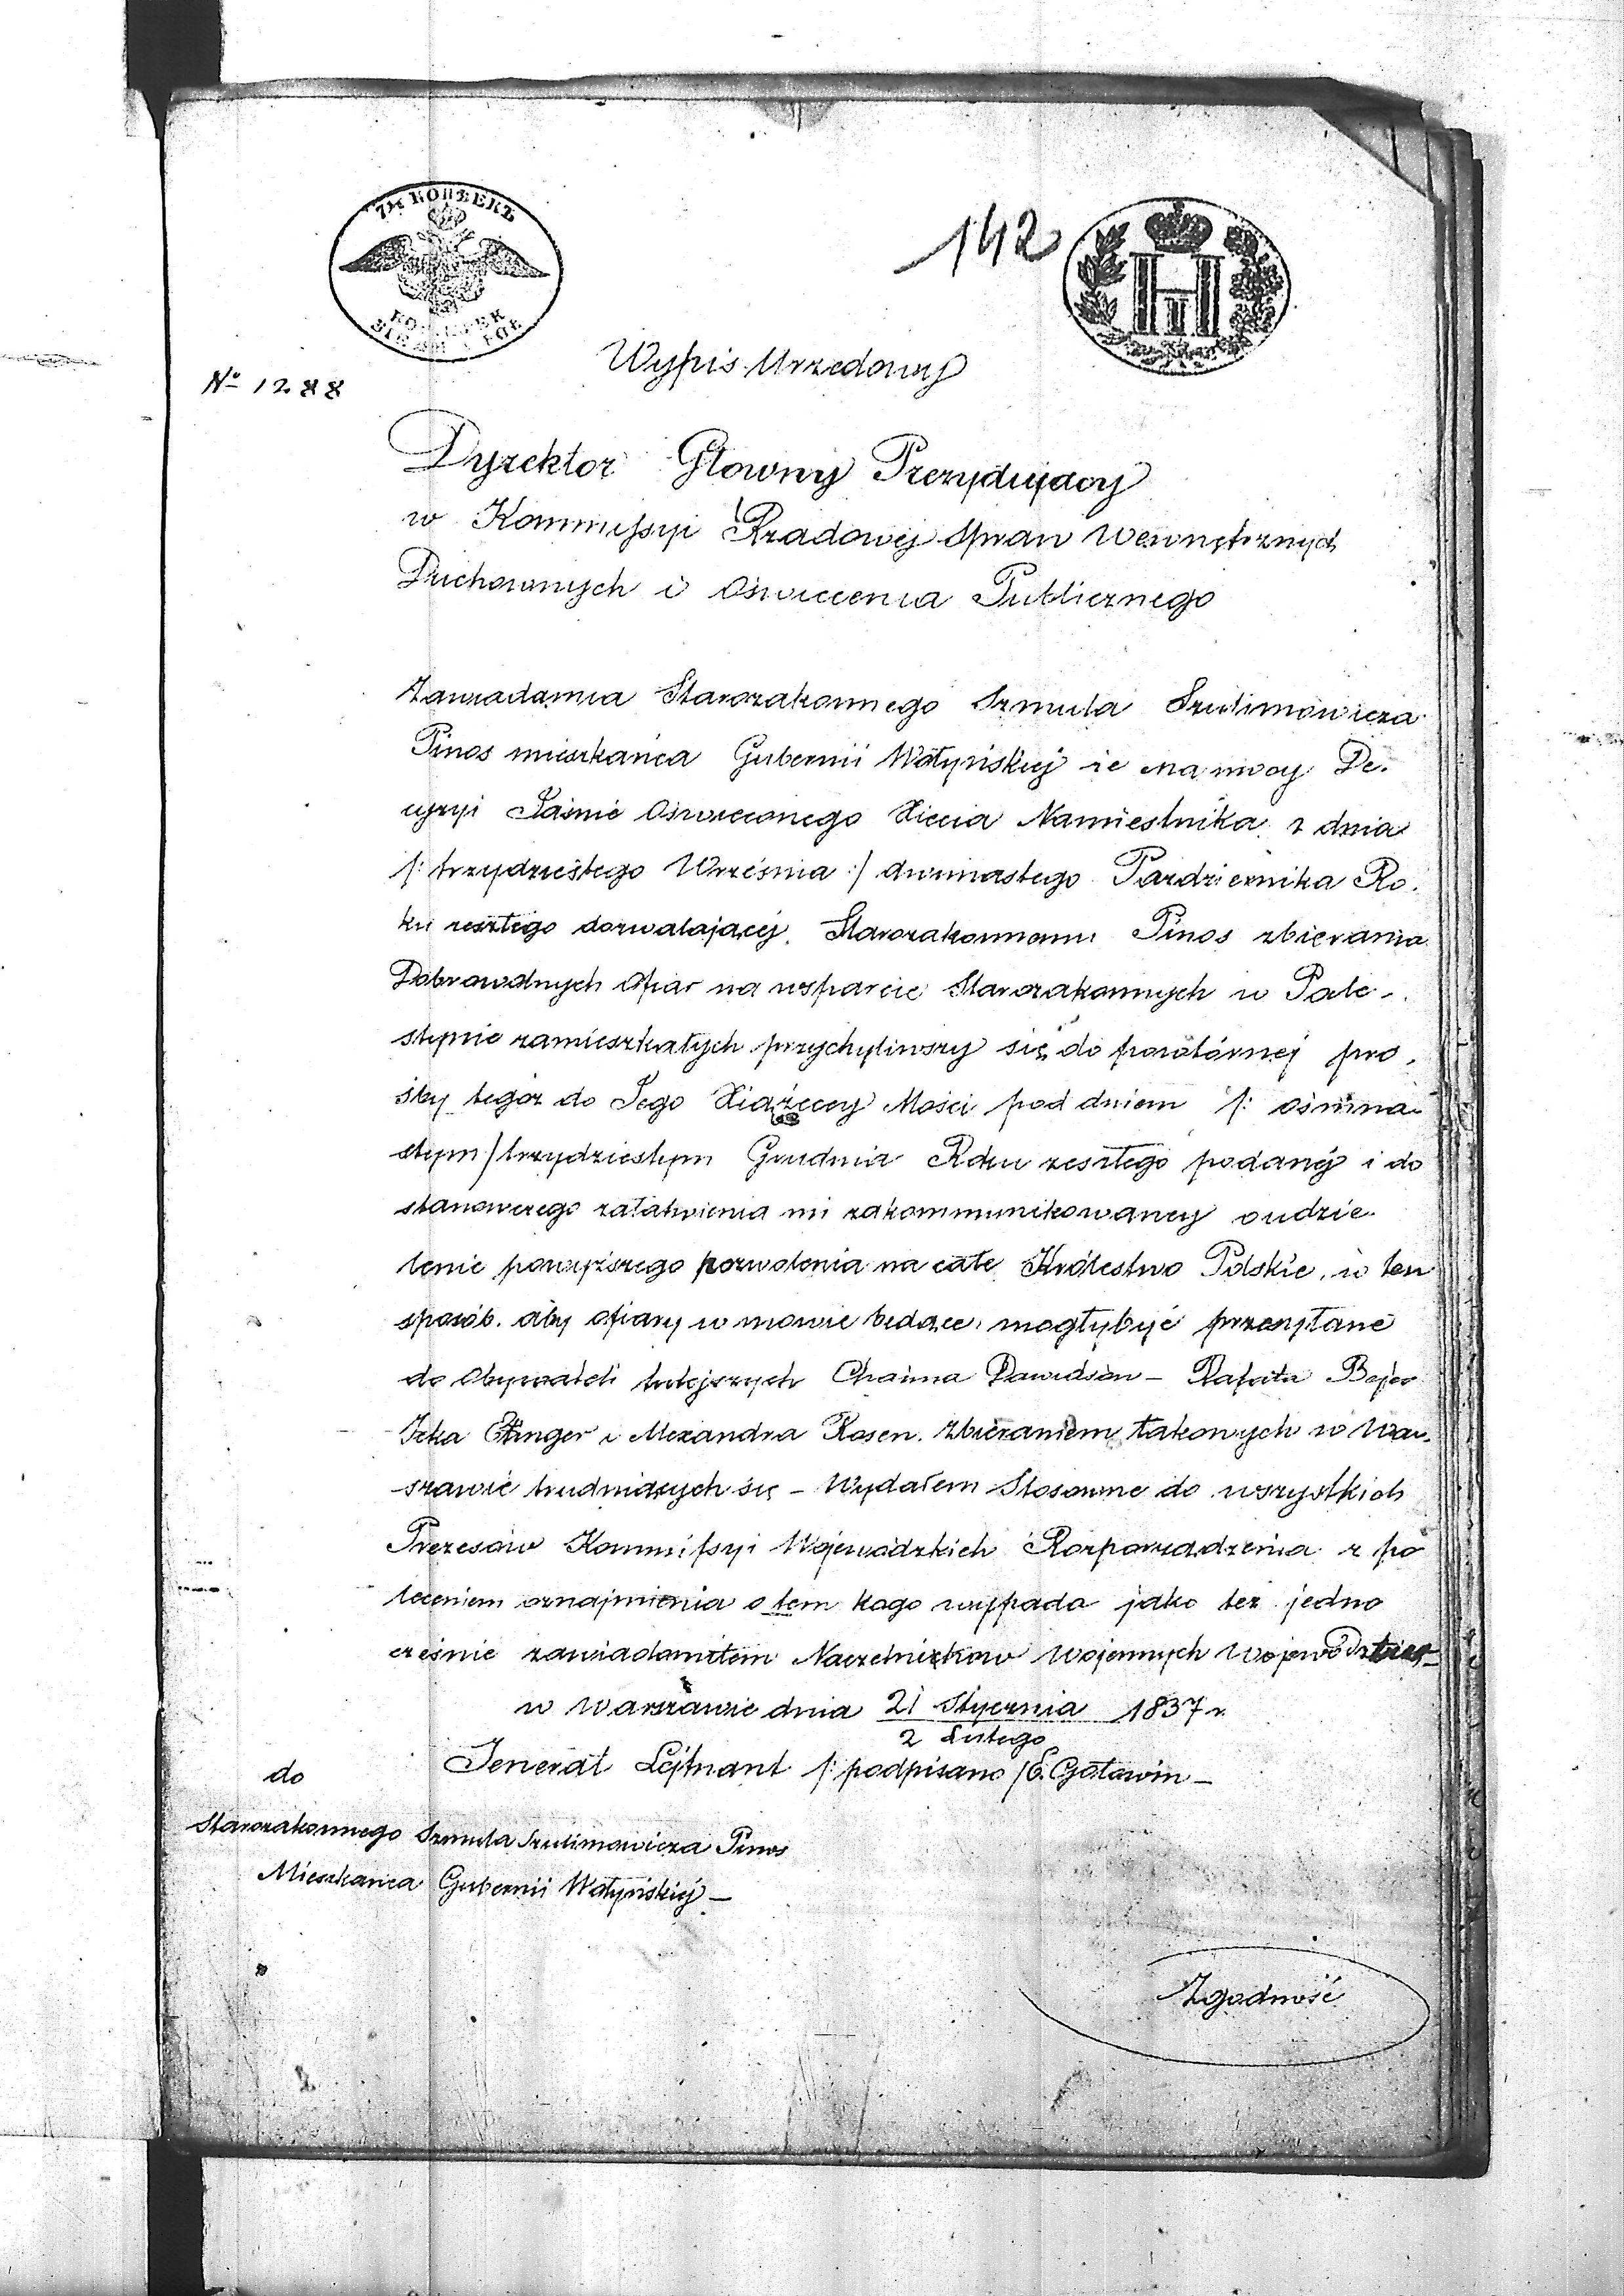 7½ КОПѢЕКЪ
142
Н I
Wypis Urzedowy
№ 1288
Dyrektor Głowny Prezydujący
w Kommissyi Rządowej Spraw Wewnętrznych
Duchownych i Oświecenia Publicznego
Zawiadamia Starozakonnego Szmula Szulimowicza
Pinos mieszkańca Gubernii Wołyńskiej że na mocy De-
cyzyi Jaśnie Oświeconego Xięcia Namiestnika z dnia
/: trzydziestego Września :/ dwunastego Pazdziernika Ro-
ku zeszłego dozwalającej Starozakonnemu Pinos zbierania
Dobrowolnych Ofiar na wsparcie Starozakonnych w Pale-
stynie zamieszkałych przychyliwszy się do powtórnej pro-
śby tegoż do Jego Xiążęcey Mości pod dniem /: ośmna-
stym / trzydziestym Grudnia Roku zeszłego podanéj i do
stanowczego załatwienia mi zakommunikowaney o udzie-
lenie powyższego pozwolenia na całe Królestwo Polskie, w ten
sposób, aby ofiary w mowie będące, mogły być przesyłane
do Obywateli tutejszych Chaima Dawidson – Rafała Bejer
Icka Ettinger i Alexandra Rosen. Zbieraniem takowych w War-
szawie trudniących się – Wydałem Stosowne do wszystkich
Prezesów Kommissyi Wojewódzkich Rozporządzenia z po
leceniem oznajmienia o tem kogo wypada jako też jedno
cześnie zawiadomiłem Naczelników Wojennych
w Warszawie dnia 21 Stycznia 1837 r.
2 Lutego
Jenerał Lejtnant /: podpisano / E. Gołowin –
do
Starozakonnego Szmula Szulimowicza Pinos
Mieszkańca Gubernii Wołyńskiej –
Zgodność